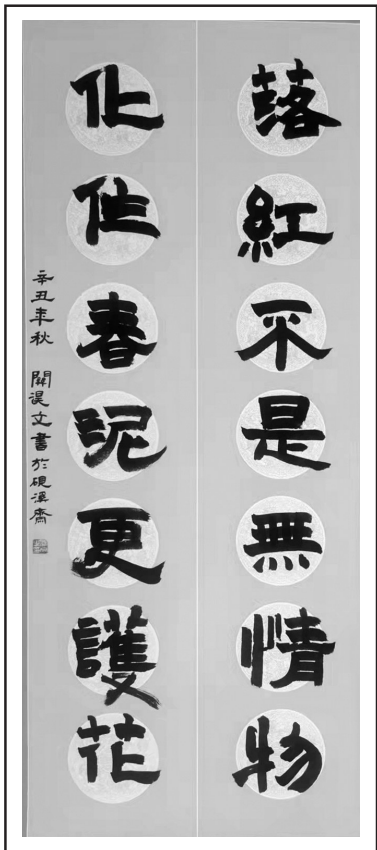 落紅不是無情物
化作春泥更護花
辛丑年秋 關文書於硯溪齋